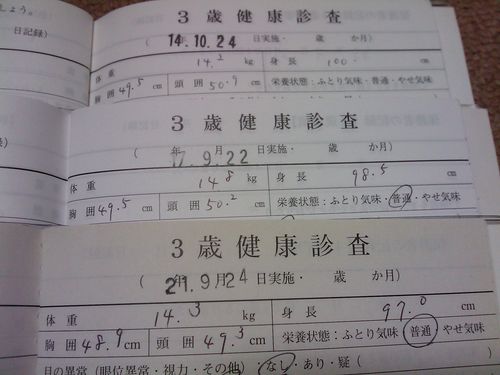 しょう。
日記録)
3歳健康診査
( 14.10.24 日実施・ 歳 か月)
体重 14.2 kg 身長 100.
胸囲 49.5 cm 頭囲 50.9 cm 栄養状態:ふとり気味・普通・やせ気味
3歳健康診査
( 年 17.9.22 日実施・ 歳 か月)
体重 14.8 kg 身長 98.5 cm
胸囲 49.5 cm 頭囲 50.2 cm 栄養状態:ふとり気味・普通・やせ気味
3歳健康診査
( 年 月 21.9.24 日実施・ 歳 か月)
体重 14.3 kg 身長 97.0 cm
胸囲 48.9 cm 頭囲 49.3 cm 栄養状態:ふとり気味・普通・やせ気味
目の異常(眼位異常・視力・その他)・なし・あり・疑(